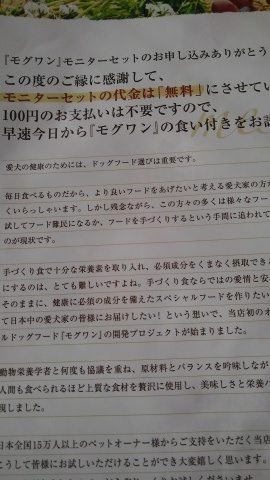 『モグワン』モニターセットのお申し込みありがとう
この度のご縁に感謝して、
モニターセットの代金は「無料」にさせてい
100円のお支払いは不要ですので、
早速今日から『モグワン』の食い付きをお試
愛犬の健康のためには、ドッグフード選びは重要です。
毎日食べるものだから、より良いフードをあげたいと考える愛犬家の方が
くいらっしゃいます。しかし残念ながら、この方々の多くは様々なフー
試してフード難民になるか、フードを手づくりするという手間に追われて
のが現状です。
手づくり食で十分な栄養素を取り入れ、必須成分をくまなく摂取できる
にするのは、とても難しいですよね。手づくり食ならではの愛情と安
そのままに、健康に必須の成分を備えたスペシャルフードを作りたい
て日本中の愛犬家の皆様にお届けしたい！という想いで、当店初のオ
ルドッグフード『モグワン』の開発プロジェクトが始まりました。
動物栄養学者と何度も協議を重ね、原材料とバランスを吟味しなが
人間も食べられるほど上質な食材を贅沢に使用し、美味しさと栄養バ
現しました。
日本全国15万人以上のペットオーナー様からご支持をいただく当店
こうして皆様にお試しいただけることができ大変嬉しく思います。